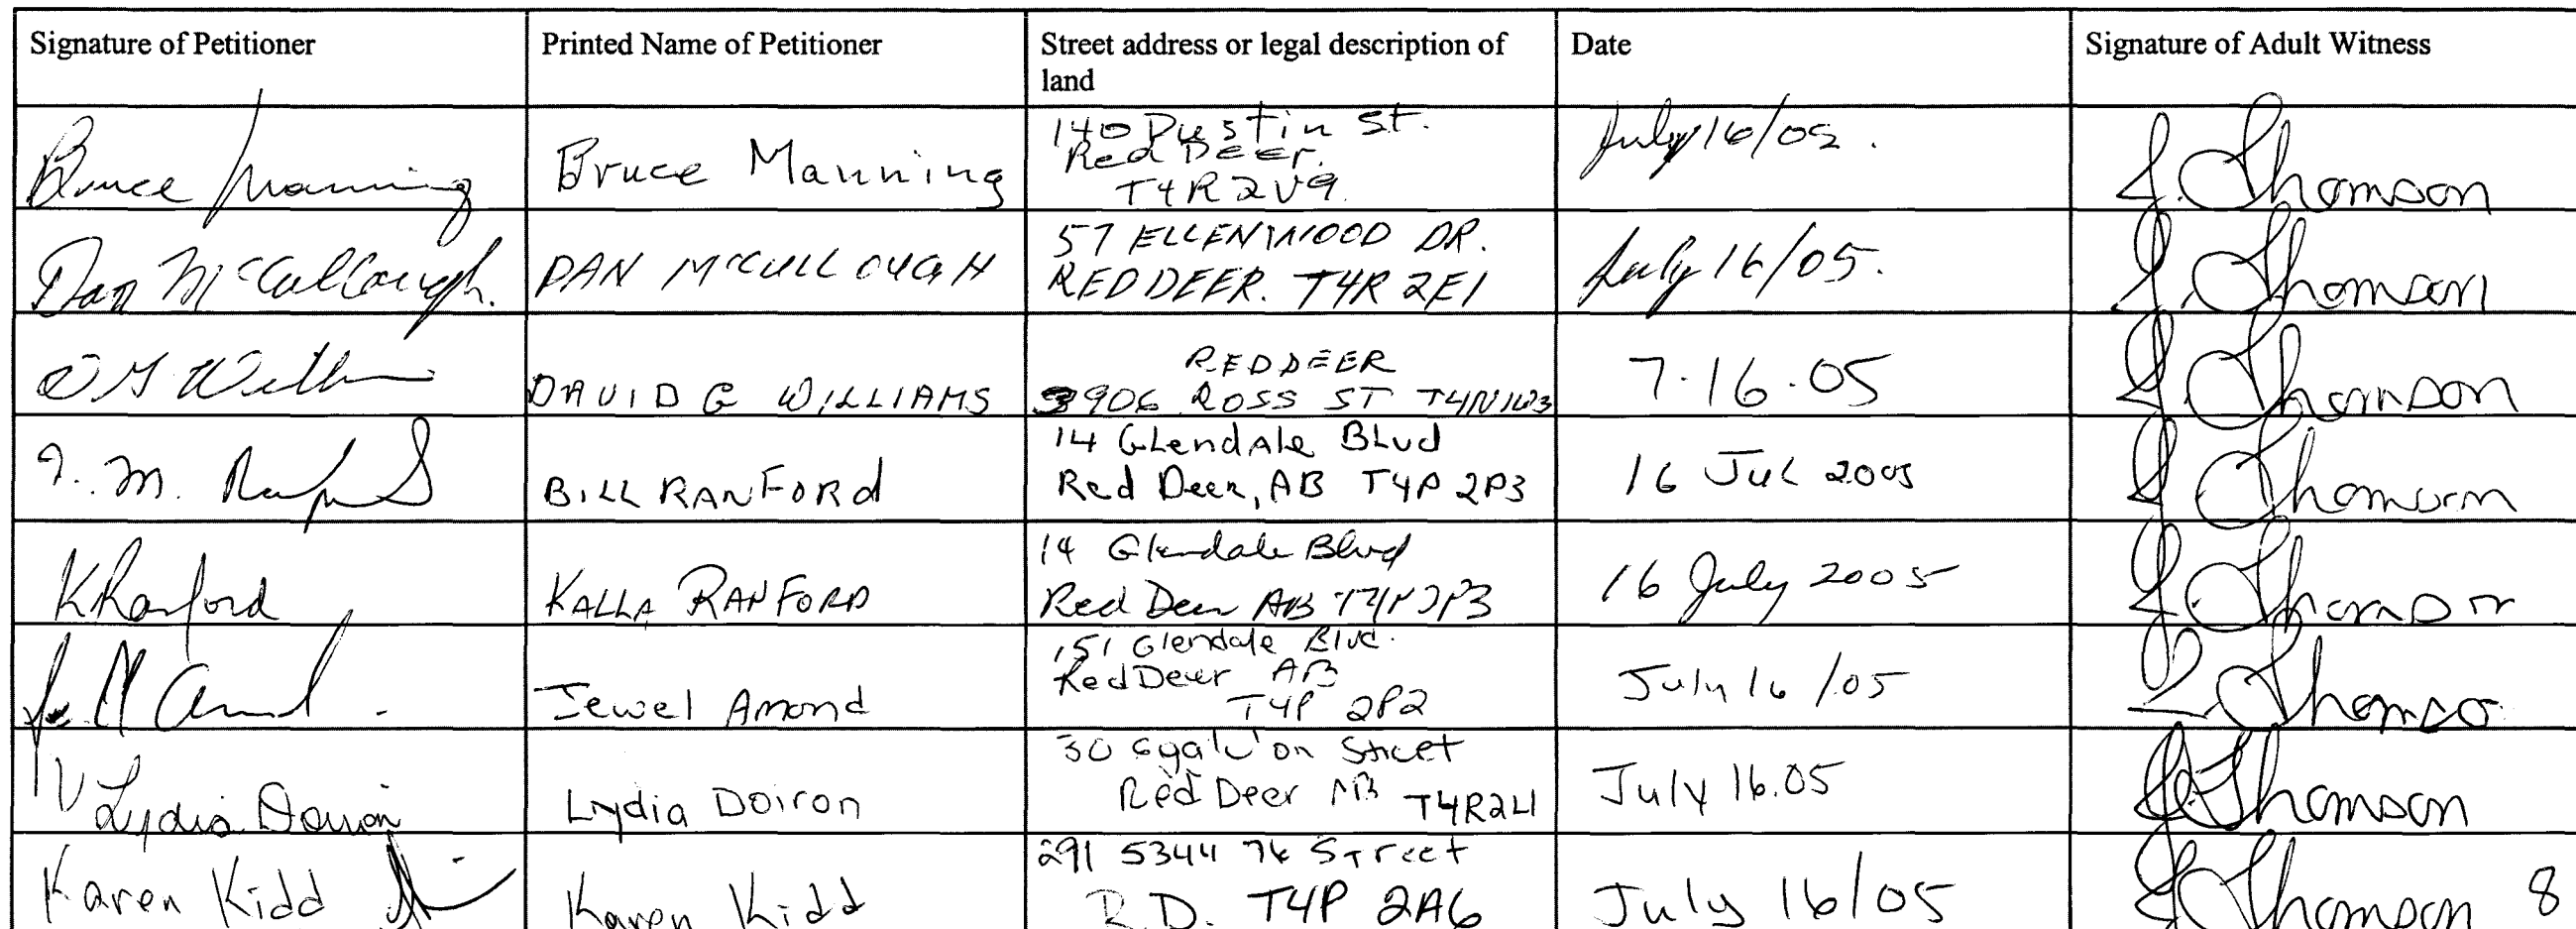 Signature of Petitioner
Printed Name of Petitioner
Street address or legal description of
land
Date
Signature of Adult Witness
Bruce Manning
Bruce Manning
140 Dustin St.
Red Deer.
T4R 2V9.
July 16/05.
J. Thomson
Dan McCullough.
DAN McCULLOUGH
57 ELLENWOOD DR.
RED DEER. T4R 2E1
July 16/05.
J. Thomson
DAVID G WILLIAMS
RED DEER
3906 ROSS ST T4N1W3
7.16.05
J Thomson
BILL RANFORD
14 GLendAle BLvd
Red Deer, AB T4P 2P3
16 Jul 2005
J Thomson
K Ranford
KALLA RANFORD
14 Glendale Blvd
Red Deer AB
16 July 2005
J Thomson
Jewel Amond
151 Glendale Blvd.
Red Deer AB
T4P 2P2
July 16/05
J Thomso
Lydia Doiron
Lydia Doiron
30 Street
Red Deer AB T4R2L1
July 16.05
J Thomson
Karen Kidd
Karen Kidd
291 5344 76 Street
R.D. T4P 2A6
July 16/05
J Thomson 8